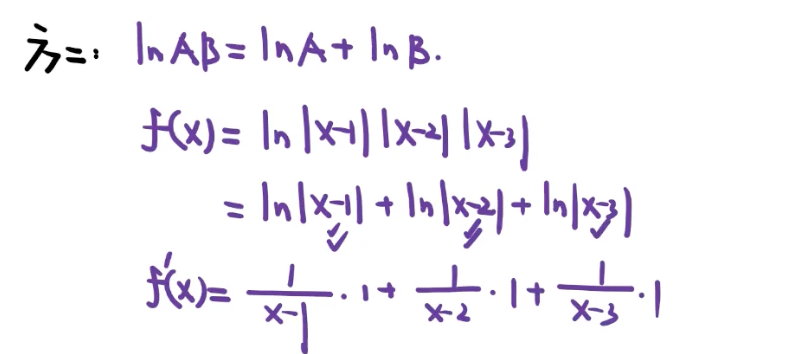 方二: ln AB = ln A + ln B.
f(x) = ln |x-1| |x-2| |x-3|
= ln|x-1| + ln|x-2| + ln|x-3|
f'(x) = 1/(x-1) · 1 + 1/(x-2) · 1 + 1/(x-3) · 1